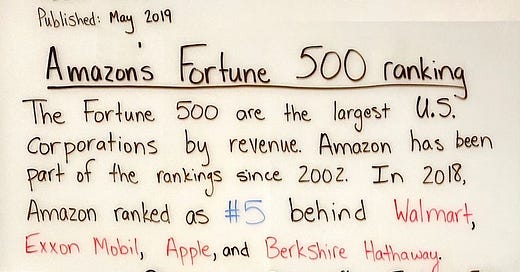 Published: May 2019
Amazon's Fortune 500 ranking
The Fortune 500 are the largest U.S.
Corporations by revenue. Amazon has been
part of the rankings since 2002. In 2018,
Amazon ranked as #5 behind Walmart,
Exxon Mobil, Apple, and Berkshire Hathaway.